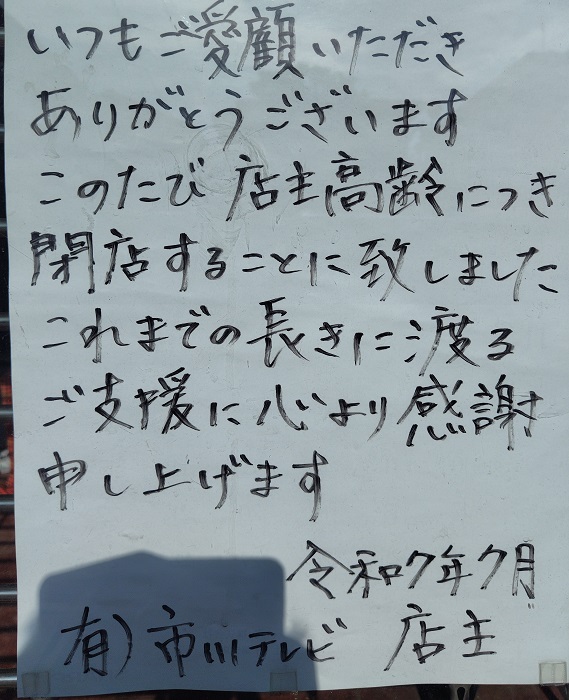 いつもご愛顧いただき
ありがとうございます
このたび 店主高齢につき
閉店することに致しました
これまでの長きに渡る
ご支援に心より感謝
申し上げます
令和7年7月
有）市川テレビ 店主